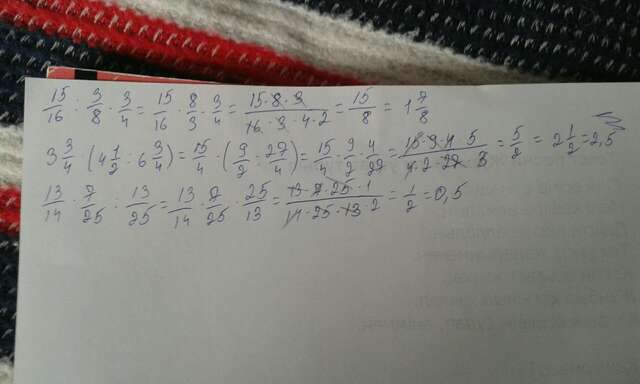 15/16 : 3/8 · 3/4 = 15/16 · 8/3 · 3/4 = 15·8·3/16·3·4·2 = 15/8 = 1 7/8
3 3/4 · (4 1/2 : 6 3/4) = 15/4 · (9/2 : 27/4) = 15/4 · 9/2 · 4/27 = 15·9·4 5/4·2·27·3 = 5/2 = 2 1/2 = 2,5
13/14 · 7/25 : 13/25 = 13/14 · 7/25 · 25/13 = 13·7·25·1/14·25·13·2 = 1/2 = 0,5